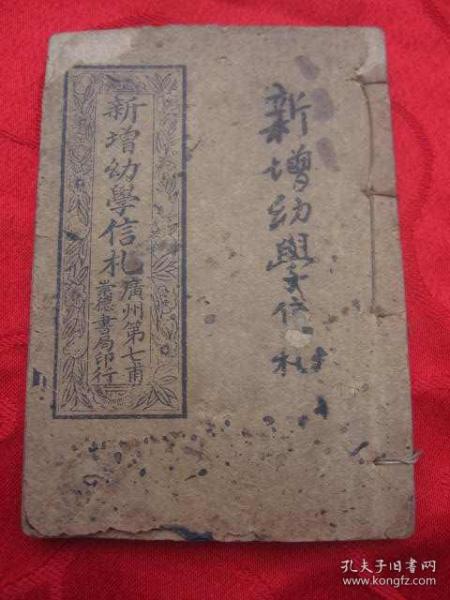 新增幼學信札
新增幼學信札
廣州第七甫
崇德書局印行
孔夫子旧书网
www.kongfz.com